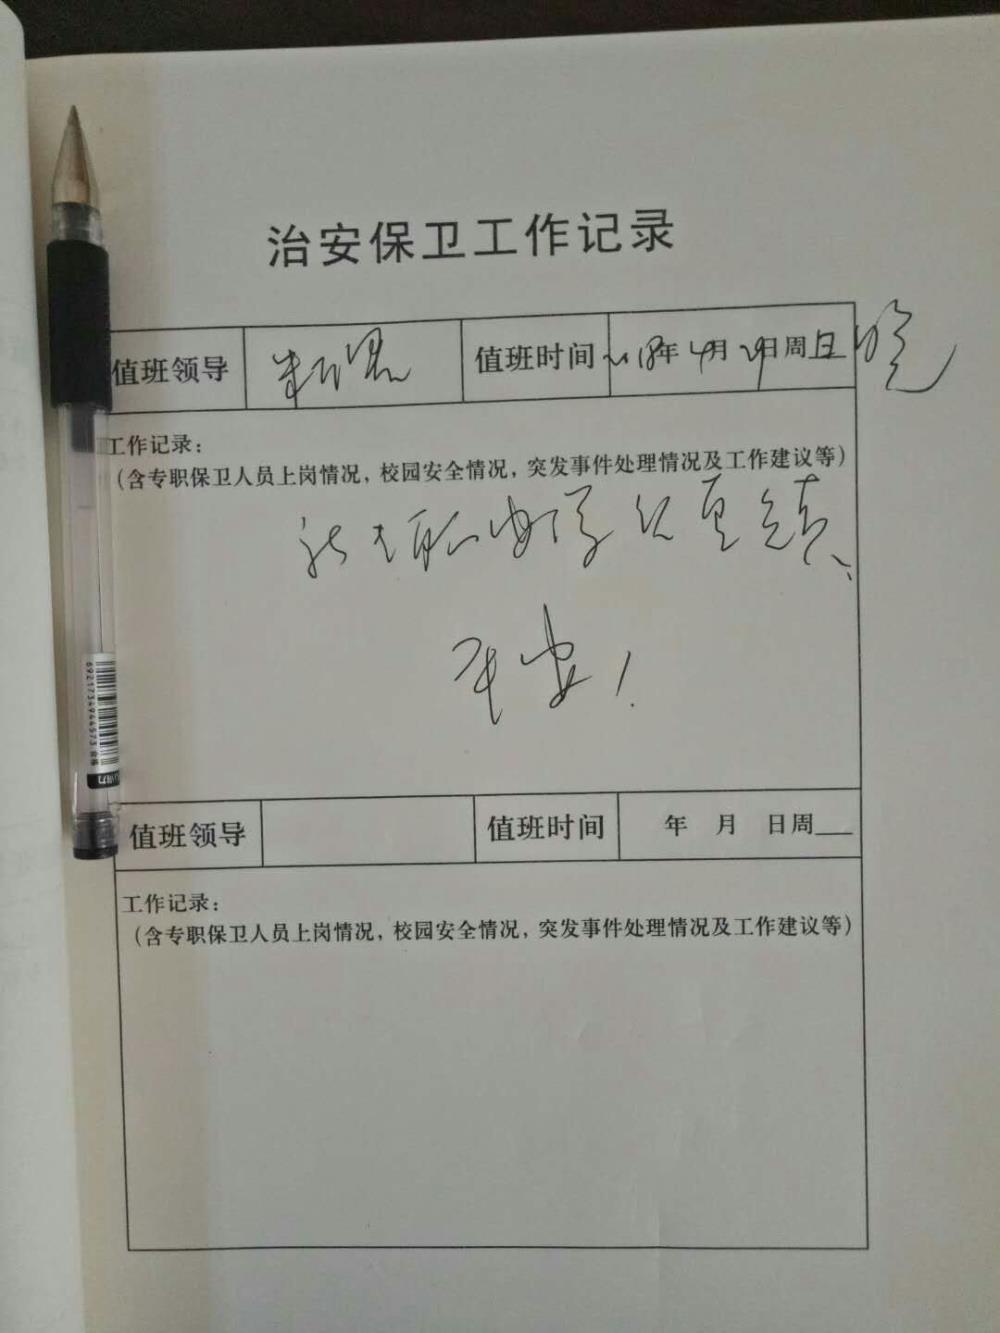 治安保卫工作记录
值班领导 值班时间 2018年4月29日周日晚
工作记录:
(含专职保卫人员上岗情况,校园安全情况,突发事件处理情况及工作建议等)
平安!
值班领导 值班时间 年 月 日周
工作记录:
(含专职保卫人员上岗情况,校园安全情况,突发事件处理情况及工作建议等)
6921734944573